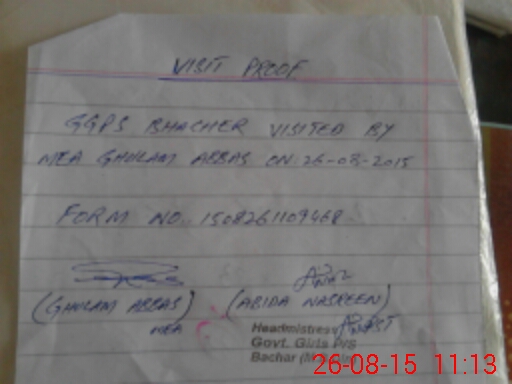 VISIT PROOF
GGPS BHACHER VISITED BY
MEA GHULAM ABBAS ON: 26-08-2015
FORM NO. 1508261109468
(GHULAM ABBAS) (ABIDA NASREEN)
MEA
Headmistress
Govt. Girls P/S
Bachar
26-08-15 11:13